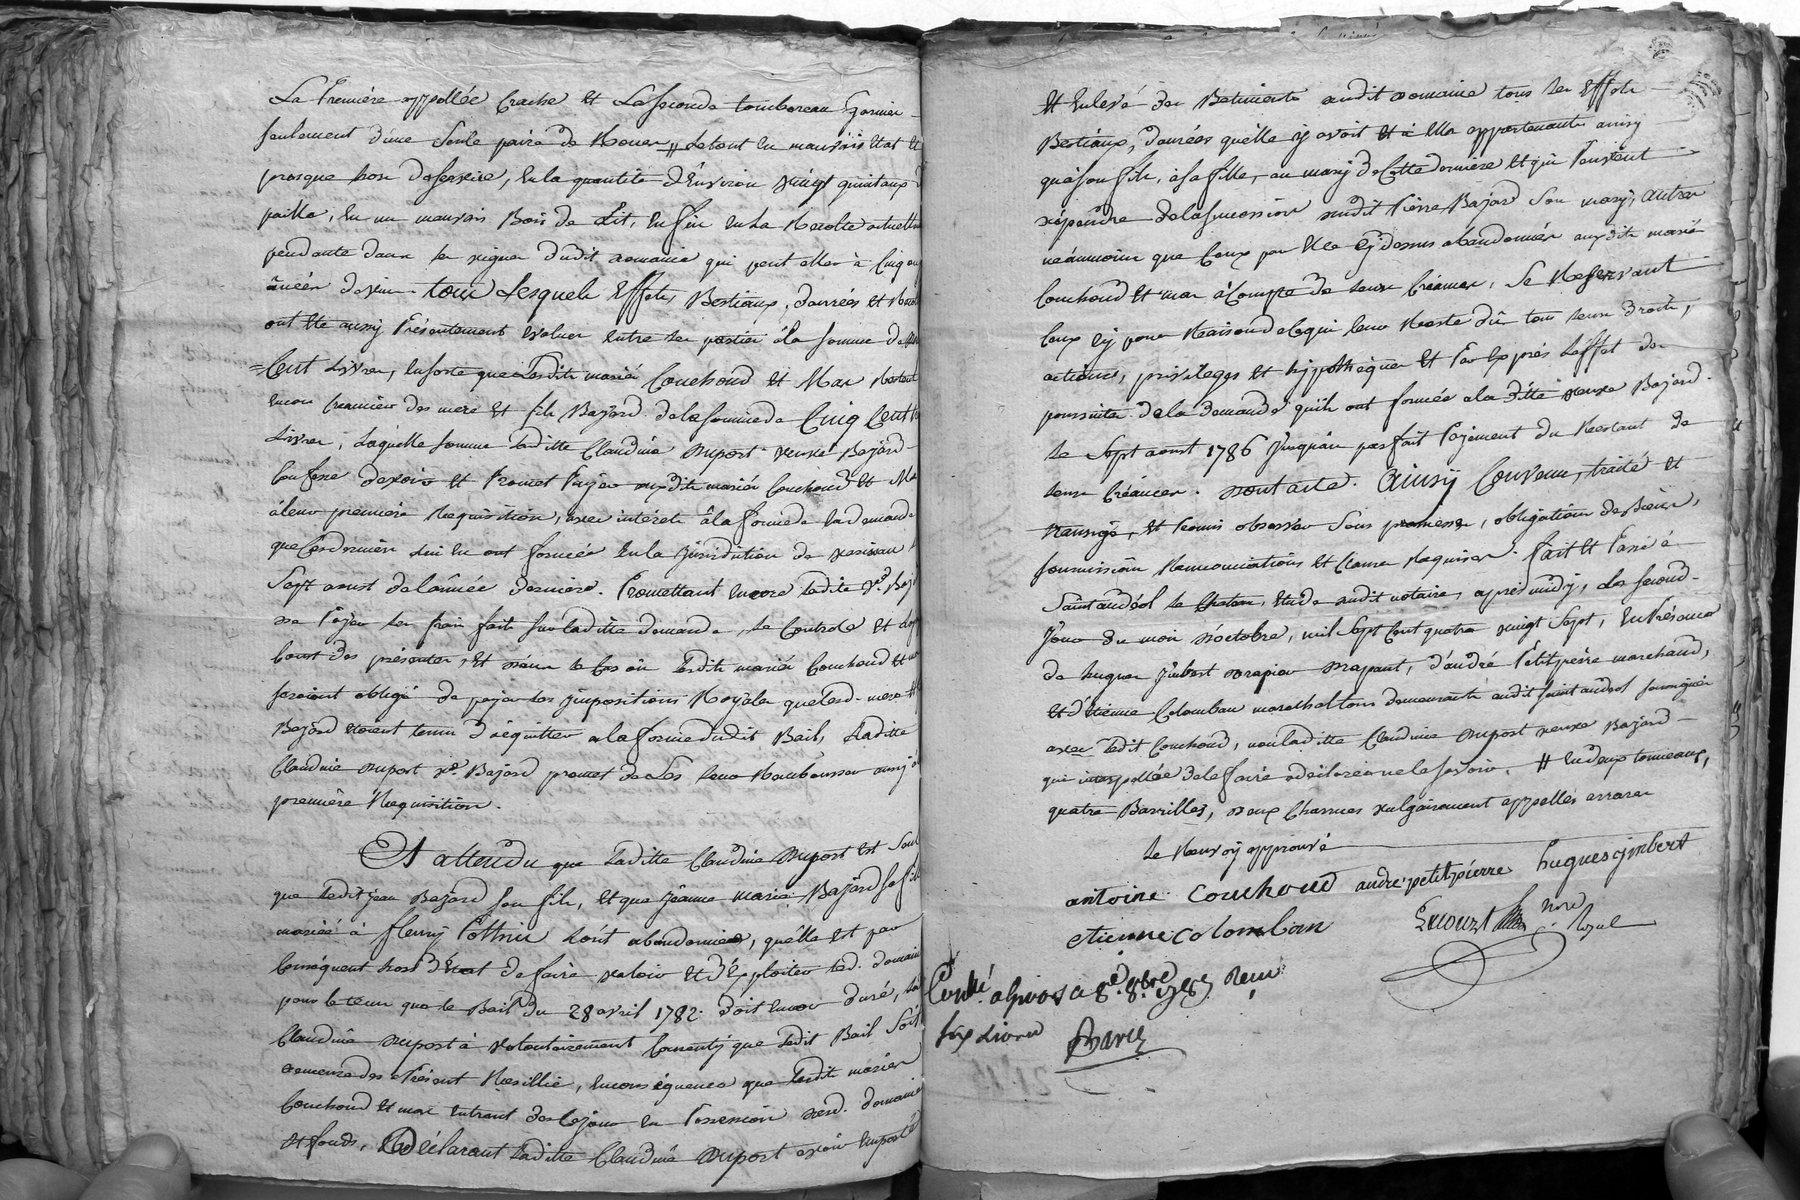 La Premiere appellée Crache et La seconde tombereau garnier
seulement d'une seule paire de Roues // le tout en mauvais état et
presque hors de service, en la quantité d'environ vingt quintaux
paille, en un mauvais Bois de Lit, enfin en La Recolte actuellem
pendante dans les vignes dudit domaine qui peut aller à Cinq ou
années de vin tous Lesquels Effets, Bestiaux, danrées et Recol
ont été aussy Présentement évalués entre les parties à la somme de
Cent Livres, ensorte que Lesdits mariés Couchoud et Mar Restent
encore Creanciers des mere et fils Bajard de la somme de Cinq Cent
Livres, Laquelle somme Laditte Claudine Duport veuve Bajard
Confesse devoir et Promet Payer auxdits mariés Couchoud et Ma
à leur premiere Requisition, avec intérêts à la forme de la demande
que Ces derniers lui en ont formée en la Jurisdiction de
Sept aoust de l'année derniere. Promettant encore Ladite Ve. Baj
de Payer les frais faits sur laditte demande, le Controle et
des présentes, et dans le Cas où Lesdits mariés Couchoud et
seroient obligés de payer Les impositions Royales que Lesd. mere
Bajard étoient tenus d'acquitter à la forme dudit Bail, Laditte
Claudine Duport Ve. Bajard promet de Les Leur Rembourser aussy à
premiere Requisition.
Et attendu que Laditte Claudine Duport est seul
que Ledit Jean Bajard son fils, et que Jeanne marie Bajard sa fill
mariée à fleury Pothier L'ont abandonnée, qu'elle est par
Conséquent hors d'état de faire valoir et d'Exploiter led. domain
pour le tems que le Bail du 28 avril 1782. doit encor duré,
Claudine Duport à volontairement Consenty que Ledit Bail Soit
demeure dès àPrésent Résillié, en conséquence que Lesdits mariés
Couchoud et mar entrent dès Ce jour en Possession desd. domaine
et fonds, Déclarant Laditte Claudine Duport avoir Emporté
Et Enlevé des Batiments dudit domaine tous les Effets
Bestiaux, danrées qu'elle y avoit et à Elle appartenants ainsy
qu'à son fils, à sa fille, au mary de Cette derniere et qui Pouvent
dépendre de la succession dudit Pierre Bajard son mary, autres
néanmoins que Ceux par Elle Cy dessus abandonnés auxdits mariés
Couchoud et mar à Compte de Leurs Créances, Se Reservant
Ceux cy pour Raison de Ce qui leur Reste dû tous Leurs Droits,
actions, privileges et hypotheques et Par Exprès L'effet des
poursuites de la demande qu'ils ont formée à la ditte veuve Bajard
le Sept aoust 1786 Jusqu'au parfait Payement du Restant de
Leurs Créances. dont acte. Ainsy Convenu, traité et
et Promis observer Sous promesses, obligations de biens,
soumissions Renonciations et Clauses Requises. fait et Passé à
Saint andéol le Chateau, Etude dudit notaire, après midy, Le second
Jour du mois d'octobre, mil Sept Cent quatre vingt Sept, En Présence
de hugues Jimbert drapier drapant, d'andré Petitpierre marchand,
et d'étienne Colomban marechal tous demeurants audit saint andéol soussignés
avec Ledit Couchoud, non laditte Claudine Duport veuve Bajard
qui interpellée de le faire a déclaré ne le savoir. // en deux tonneaux,
quatre Barrilles, deux Charrues vulgairement appellés arrares
Le Renvoy approuvé
antoine Couchoud andre petitpierre hugues jimbert
etienne colomban
nore
Royal
Conlé à givors ce 8e. 8bre 1787 Reçu
six Livres